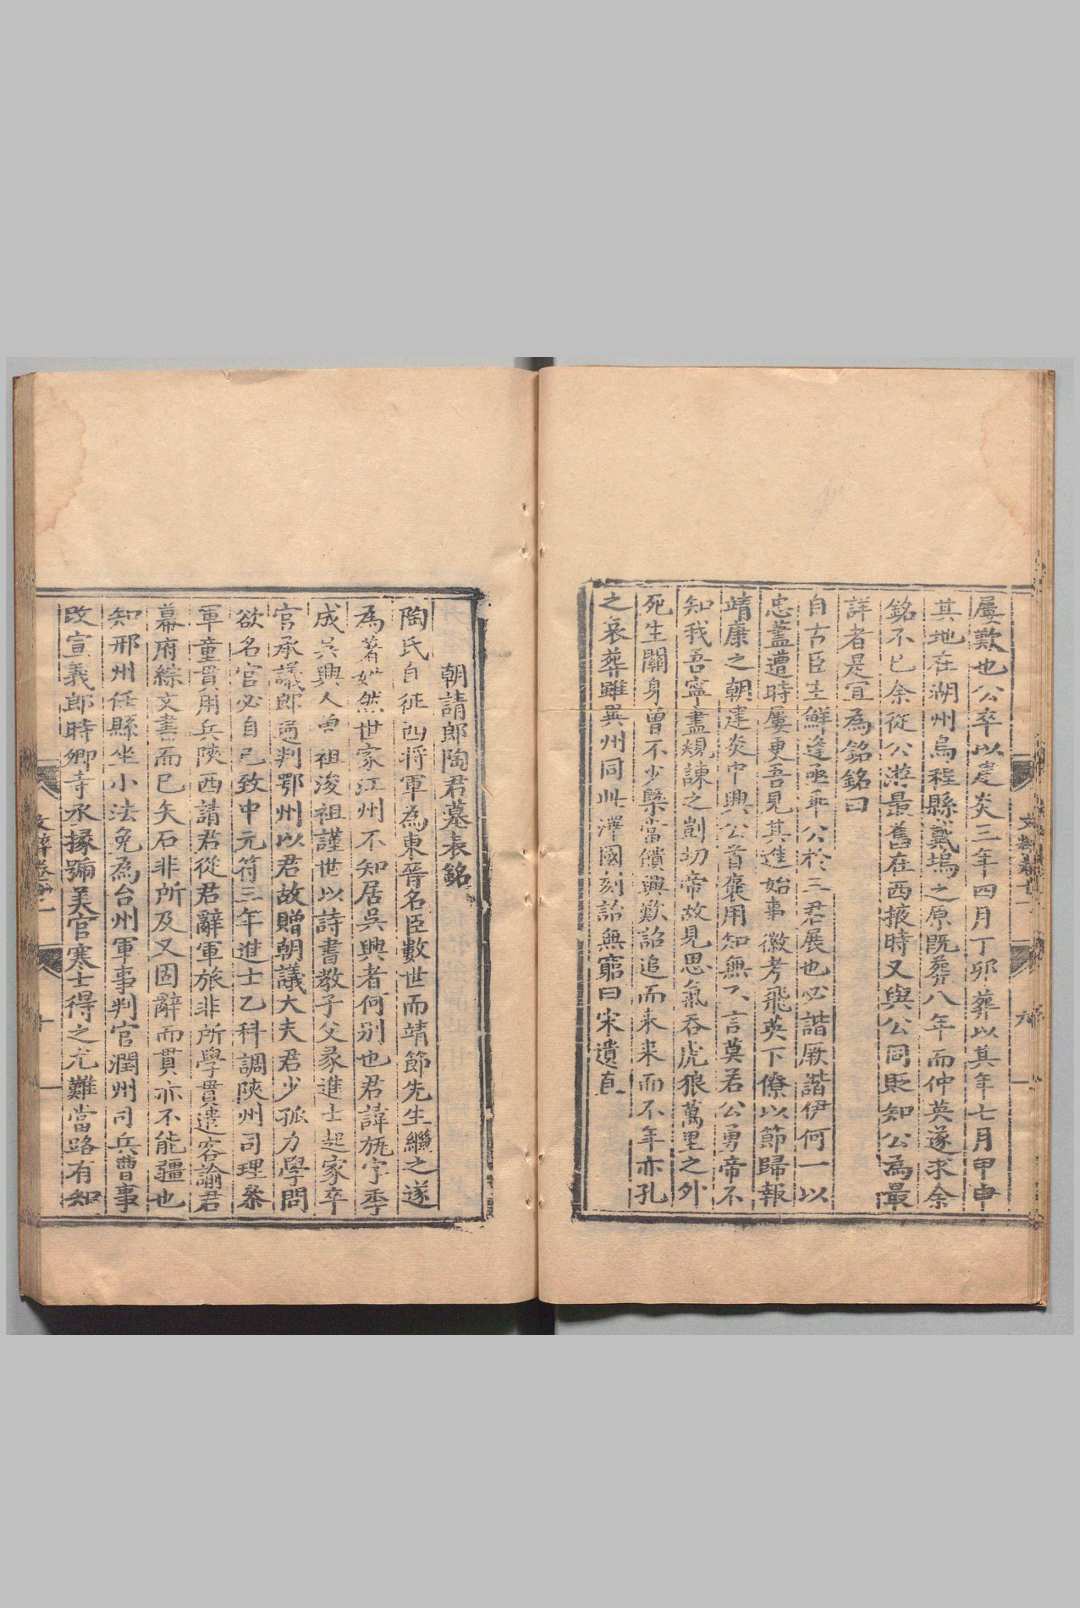 屢歎也公卒以建炎三年四月丁卯葬以其年七月甲申
其地在湖州烏程縣戴塢之原既葬八年而仲英遂求余
銘不已余從公游最舊在西掖時又與公同貶知公為最
詳者是宜為銘銘曰
自古臣主鮮逢丞乖公於三君展也必諧厥諧伊何一以
忠藎遭時屢更吾見其進始事徽考飛英下僚以節歸報
靖康之朝建炎中興公首褎用知無不言莫若公勇帝不
知我吾寧盡規諫之剴切帝故見思氣吞虎狼萬里之外
死生關身曾不少槩當饋興歎詔追而來来而不年亦孔
之哀葬雖異州同此澤國刻詒無窮曰宋遺直
朝請郎陶君墓表銘
陶氏自征西將軍為東晉名臣數世而靖節先生繼之遂
為著姓然世家江州不知居吳興者何別也君諱旊字季
成吳興人曾祖浚祖謹世以詩書教子父彖進士起家卒
官承議郎通判鄂州以君故贈朝議大夫君少孤力學問
欲名官必自己致中元符三年進士乙科調陝州司理參
軍童貫用兵陝西請君從君辭軍旅非所學貫遣客諭君
幕府綜文書而巳矢石非所及又固辭而貫亦不能疆也
知邢州任縣坐小法免為台州軍事判官潤州司兵曹事
改宣義郎時卿寺丞掾號美官寒士得之尤難當路有知